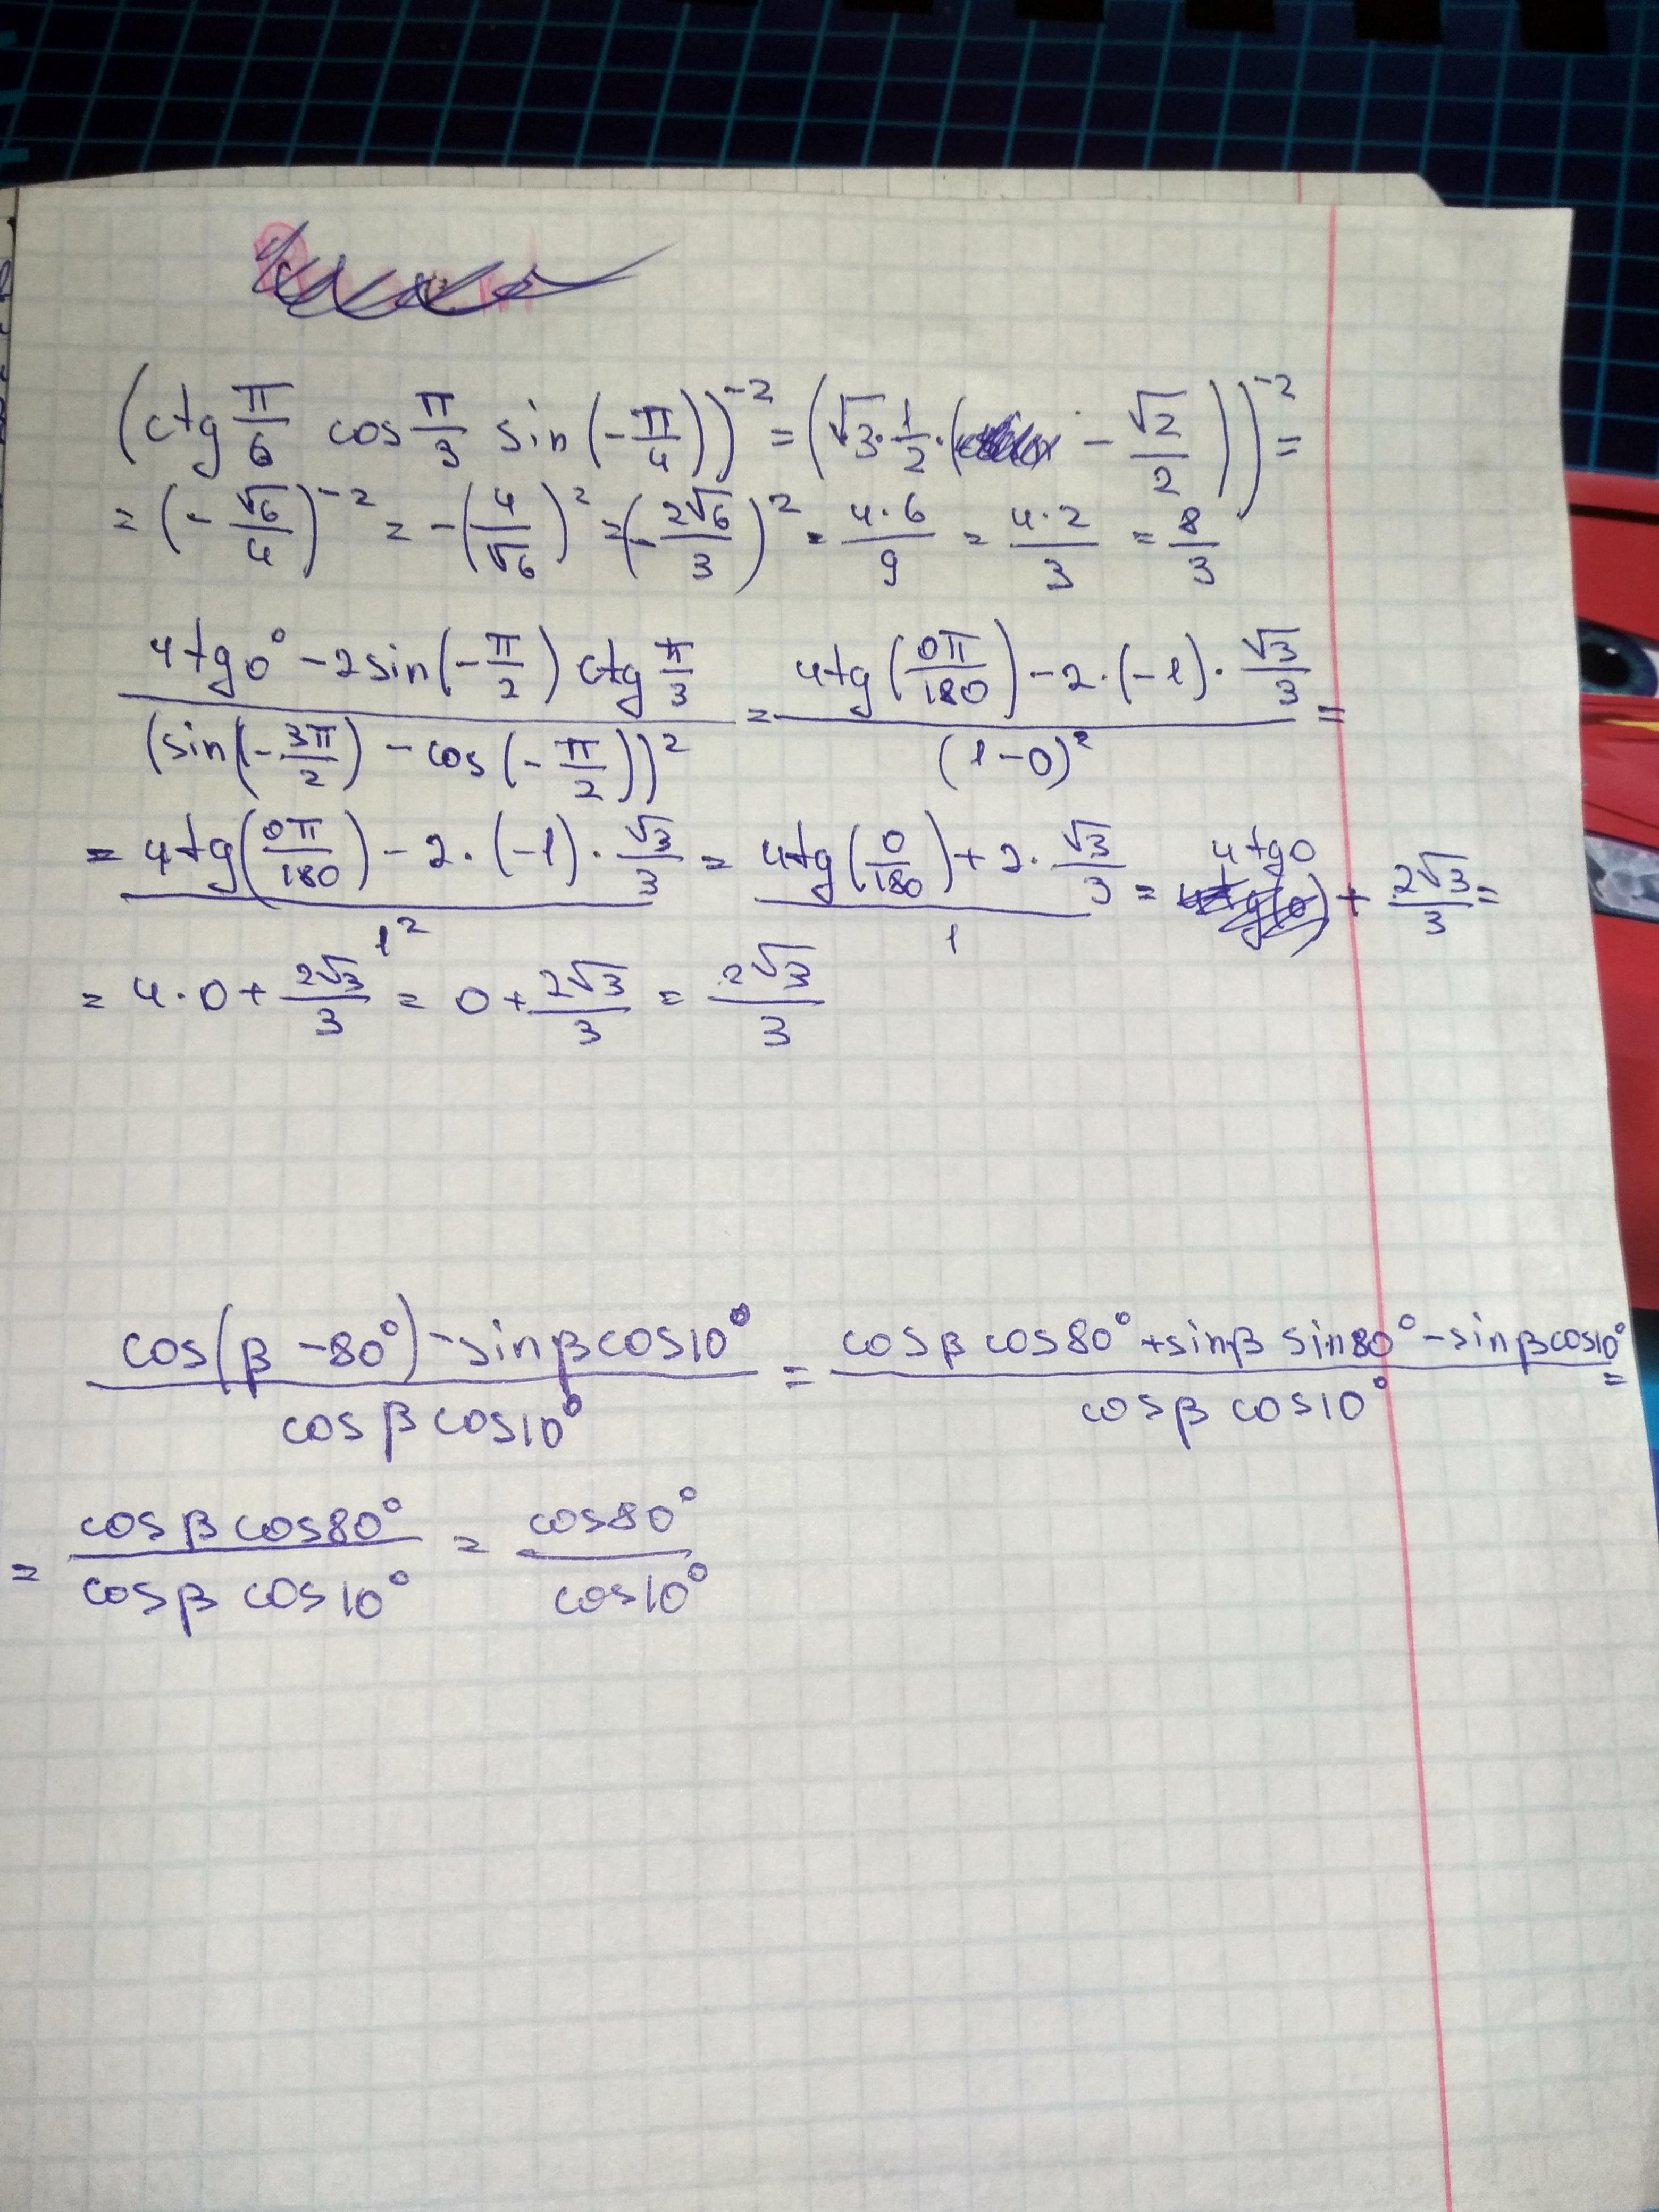 (ctg π/6 cos π/3 sin (-π/4))^-2 = (√3·1/2·( - √2/2))^-2 =
= (- √6/4)^-2 = -(4/√6)^2 = (- 2√6/3)^2 = 4·6/9 = 4·2/3 = 8/3
(4tg0° - 2sin(-π/2) ctg π/3)/(sin(-3π/2) - cos(-π/2))^2 = (4tg(0π/180) - 2·(-1)·√3/3)/(1-0)^2 =
= (4tg(0π/180) - 2·(-1)·√3/3)/1^2 = (4tg(0/180) + 2·√3/3)/1 = 4tg0 + 2√3/3 =
= 4·0 + 2√3/3 = 0 + 2√3/3 = 2√3/3
(cos(β - 80°) - sinβcos10°)/(cosβcos10°) = (cosβcos80° + sinβ sin80° - sinβcos10°)/(cosβ cos10°) =
= (cosβcos80°)/(cosβ cos10°) = cos80°/cos10°